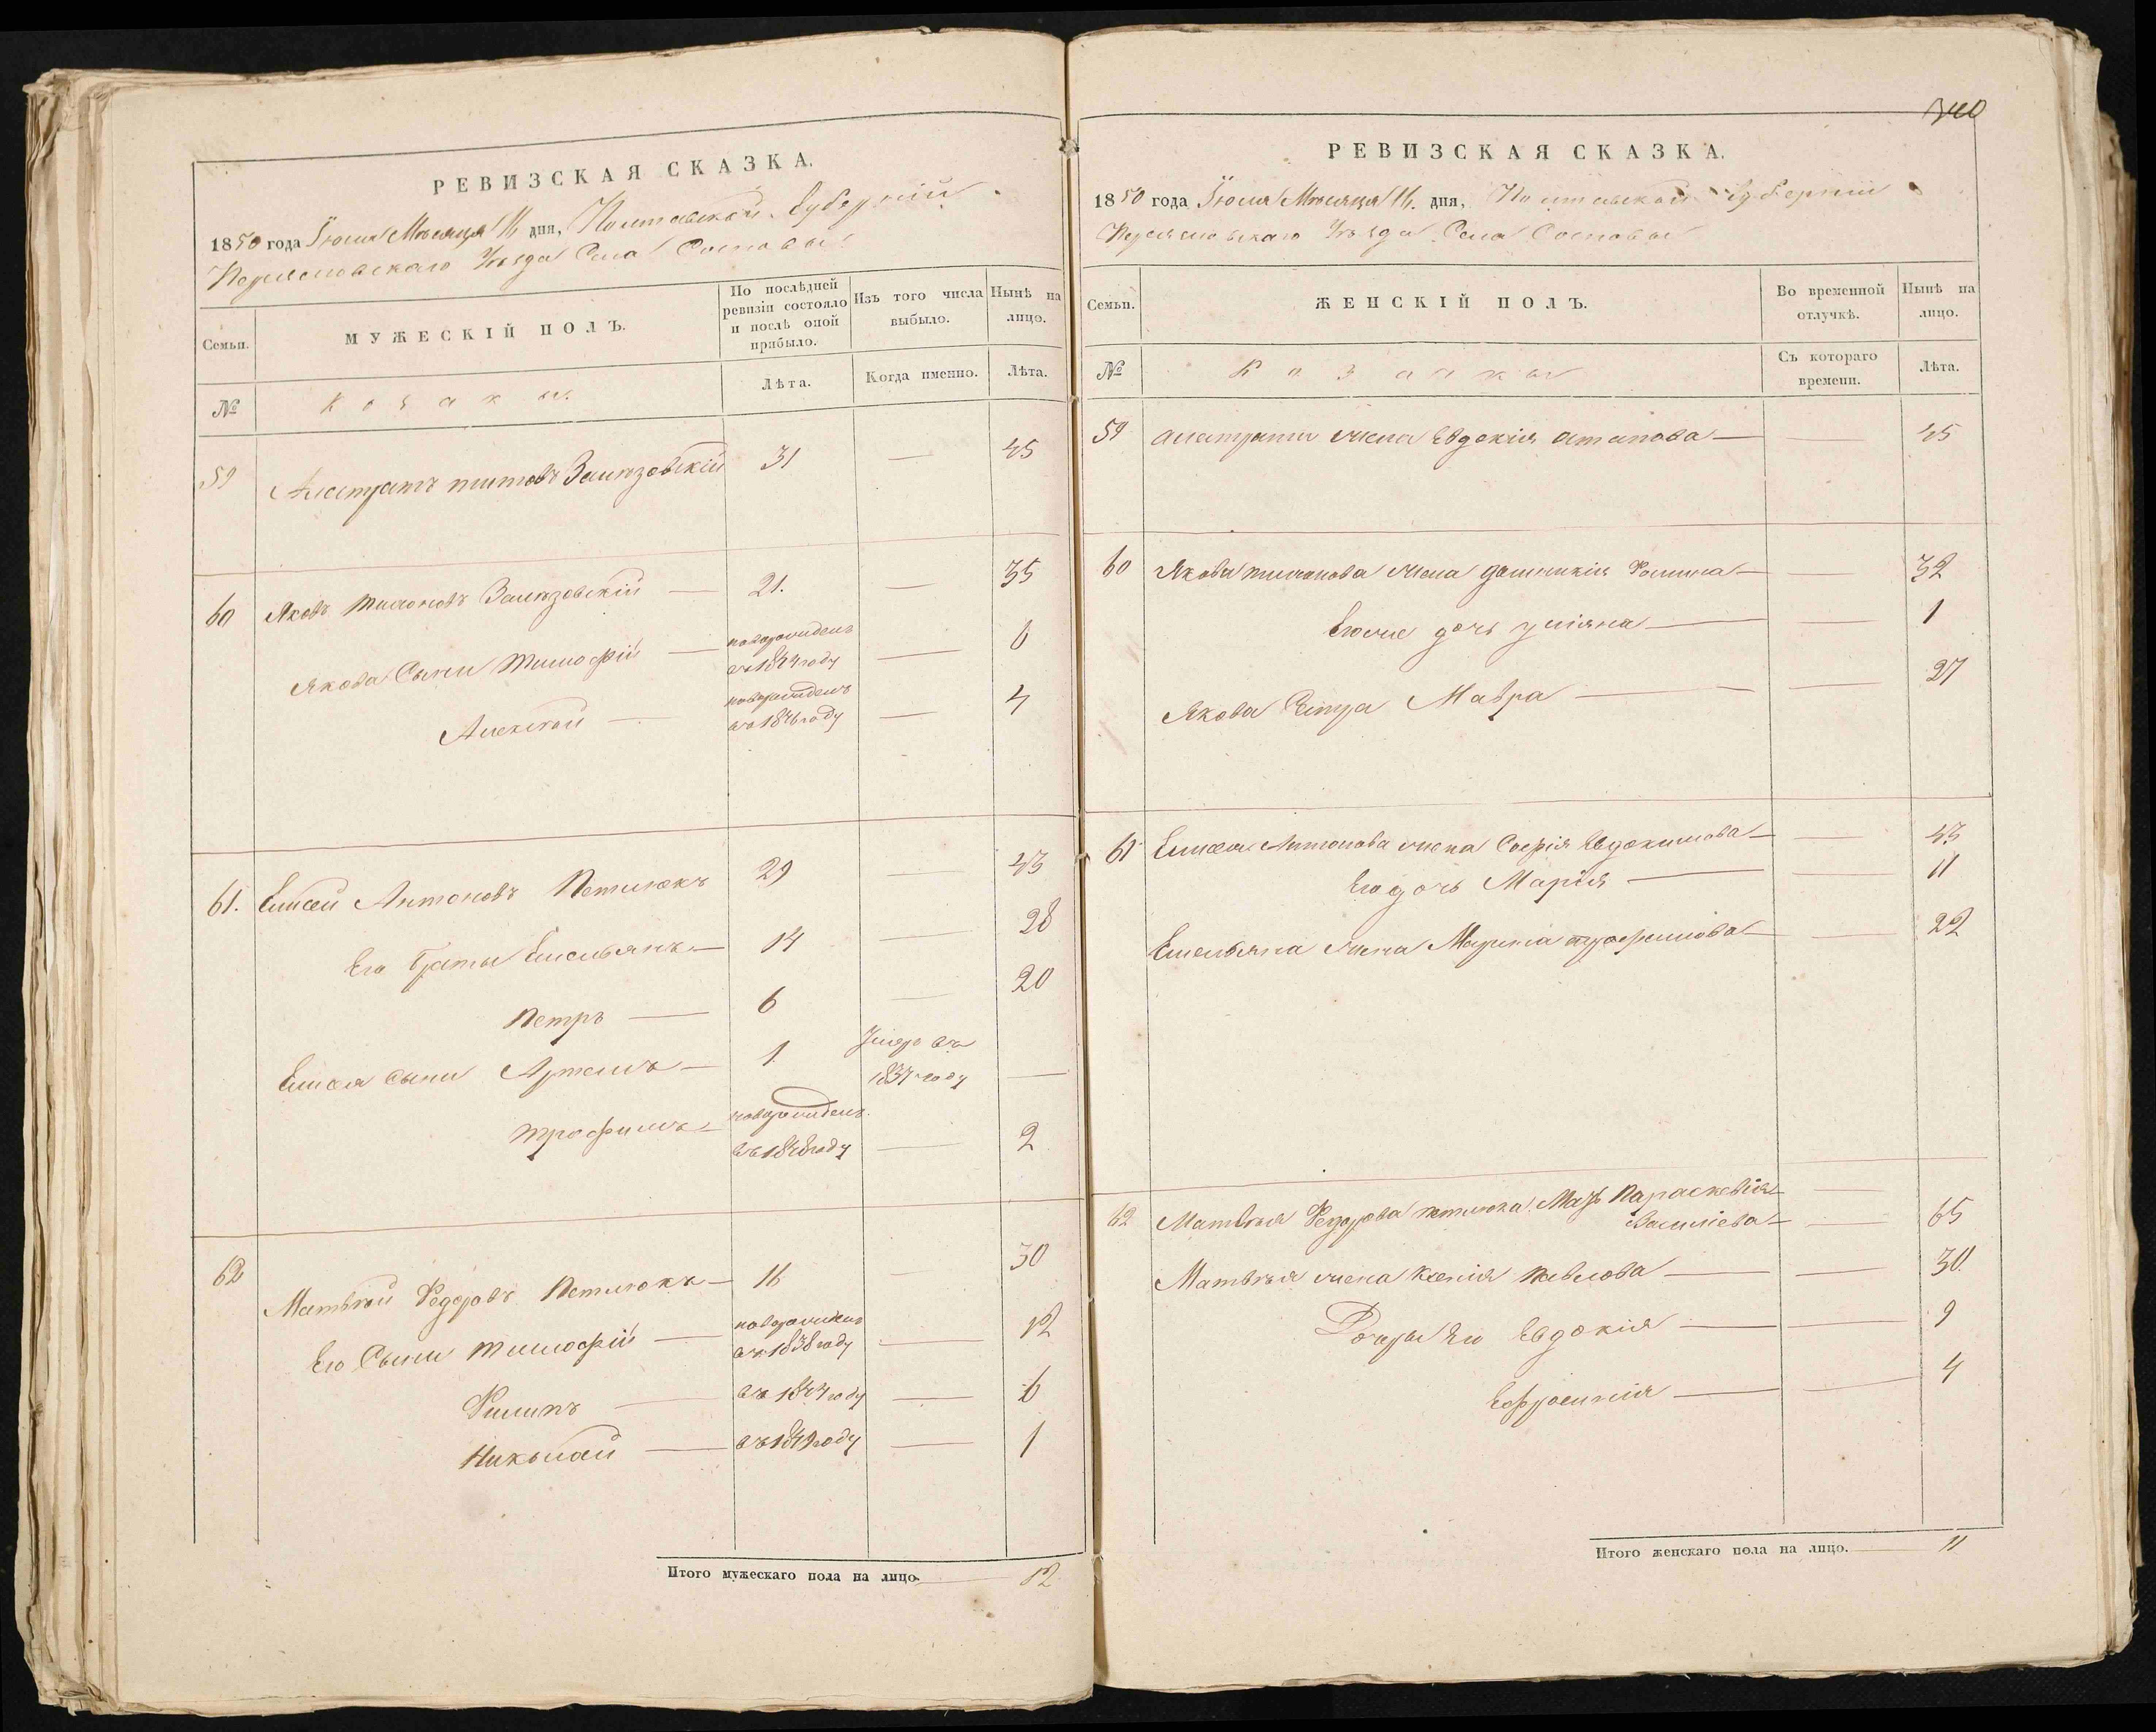 РЕВИЗСКАЯ СКАЗКА.
1850 года Іюля Мѣсяца 16 дня, Полтавской Губерніи
Переяславскаго Уѣзда Села Сосновы
Семьи. МУЖЕСКІЙ ПОЛЪ. По послѣдней ревизіи состояло и послѣ оной прибыло. Изъ того числа выбыло. Нынѣ на лицо.
№ Козаки. Лѣта. Когда именно. Лѣта.
59 Калистратъ Титовъ 31 — 45
60 Яковъ Тимоновъ — 21. — 35
Якова Сыны Тимофій — новорожденъ въ 1844 году — 6
Алексѣй — новорожденъ въ 1846 году — 4
61. Елисей Антоновъ Петлюкъ 29 — 43
Его братья Емельянъ — 14 — 28
Петръ — 6 — 20
Елисея сыны Артемъ — 1 Умеръ въ 1837 году —
Трофимъ — новорожденъ въ 1848 году — 2
62 Матвѣй Федоровъ Петлюкъ — 16 — 30
Его Сыны Тимофій — новорожденъ въ 1838 году — 12
Филипъ — въ 1844 году — 6
Николай — въ 1849 году — 1
Итого мужескаго пола на лицо. — 12
340
РЕВИЗСКАЯ СКАЗКА.
1850 года Іюля Мѣсяца 16. дня, Полтавской Губерніи
Переяславскаго Уѣзда Села Сосновы
Семьи. ЖЕНСКІЙ ПОЛЪ. Во временной отлучкѣ. Нынѣ на лицо.
№ Козачки Съ котораго времени. Лѣта.
59 Калистрата жена Евдокія — — 45
60 Якова Тимонова жена Фомина — — 32
Его же дочь Уліяна — — 1
Якова Сестра Мавра — — 27
61 Елисея Антонова жена Софія Евдокимова — — 43
Его дочь Марія — — 11
Емельяна жена Марина Трофимова — — 22
62 Матвѣя Федорова Петлюка Мать Параскевія —
Василіева — — 65
Матвѣя жена Ксенія Павлова — — 30
Дочери Его Евдокія — — 9
Ефросинія — — 4
Итого женскаго пола на лицо. — 11